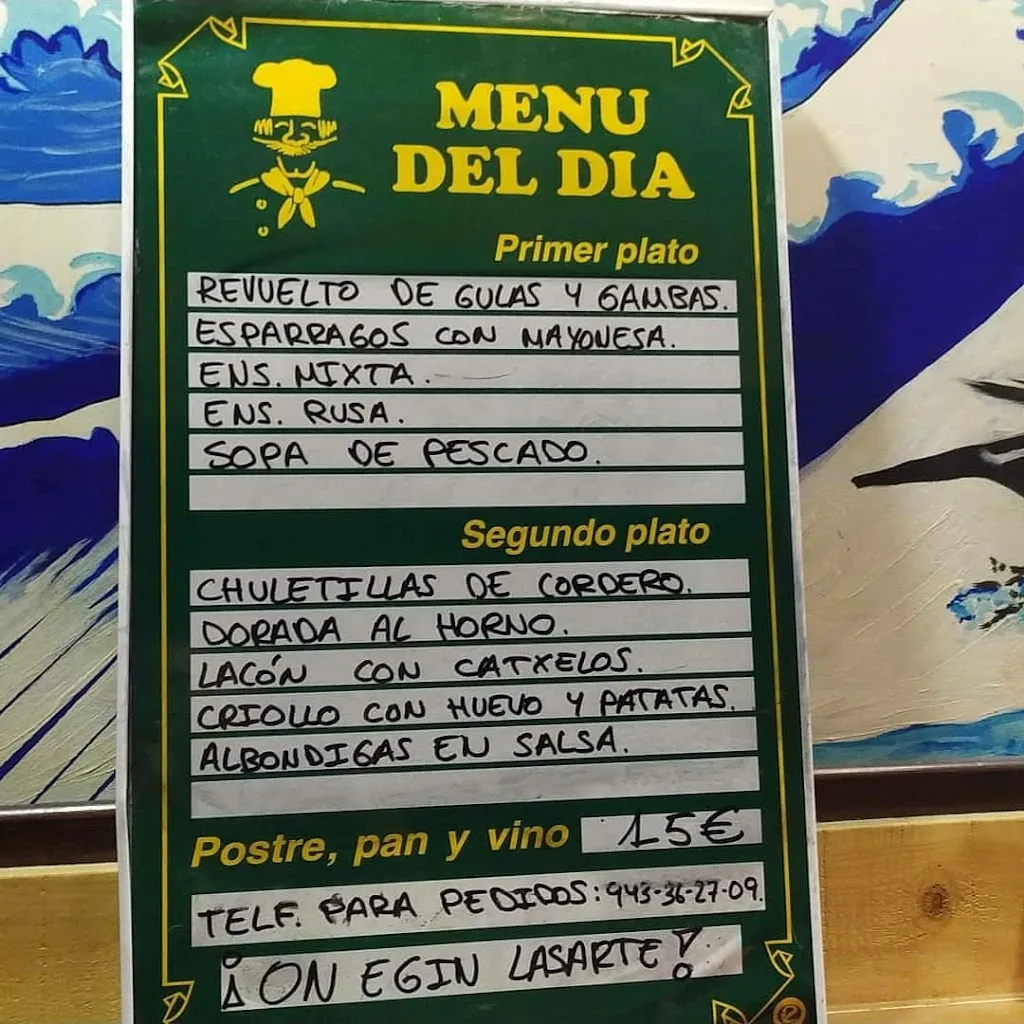 MENU
DEL DIA
Primer plato
REVUELTO DE GULAS Y GAMBAS.
ESPARRAGOS CON MAYONESA.
ENS. MIXTA.
ENS. RUSA.
SOPA DE PESCADO.
Segundo plato
CHULETILLAS DE CORDERO.
DORADA AL HORNO.
LACÓN CON CATXELOS.
CRIOLLO CON HUEVO Y PATATAS.
ALBONDIGAS EN SALSA.
Postre, pan y vino 15€
TELF. PARA PEDIDOS: 943-36-27-09.
¡ON EGIN LASARTE!